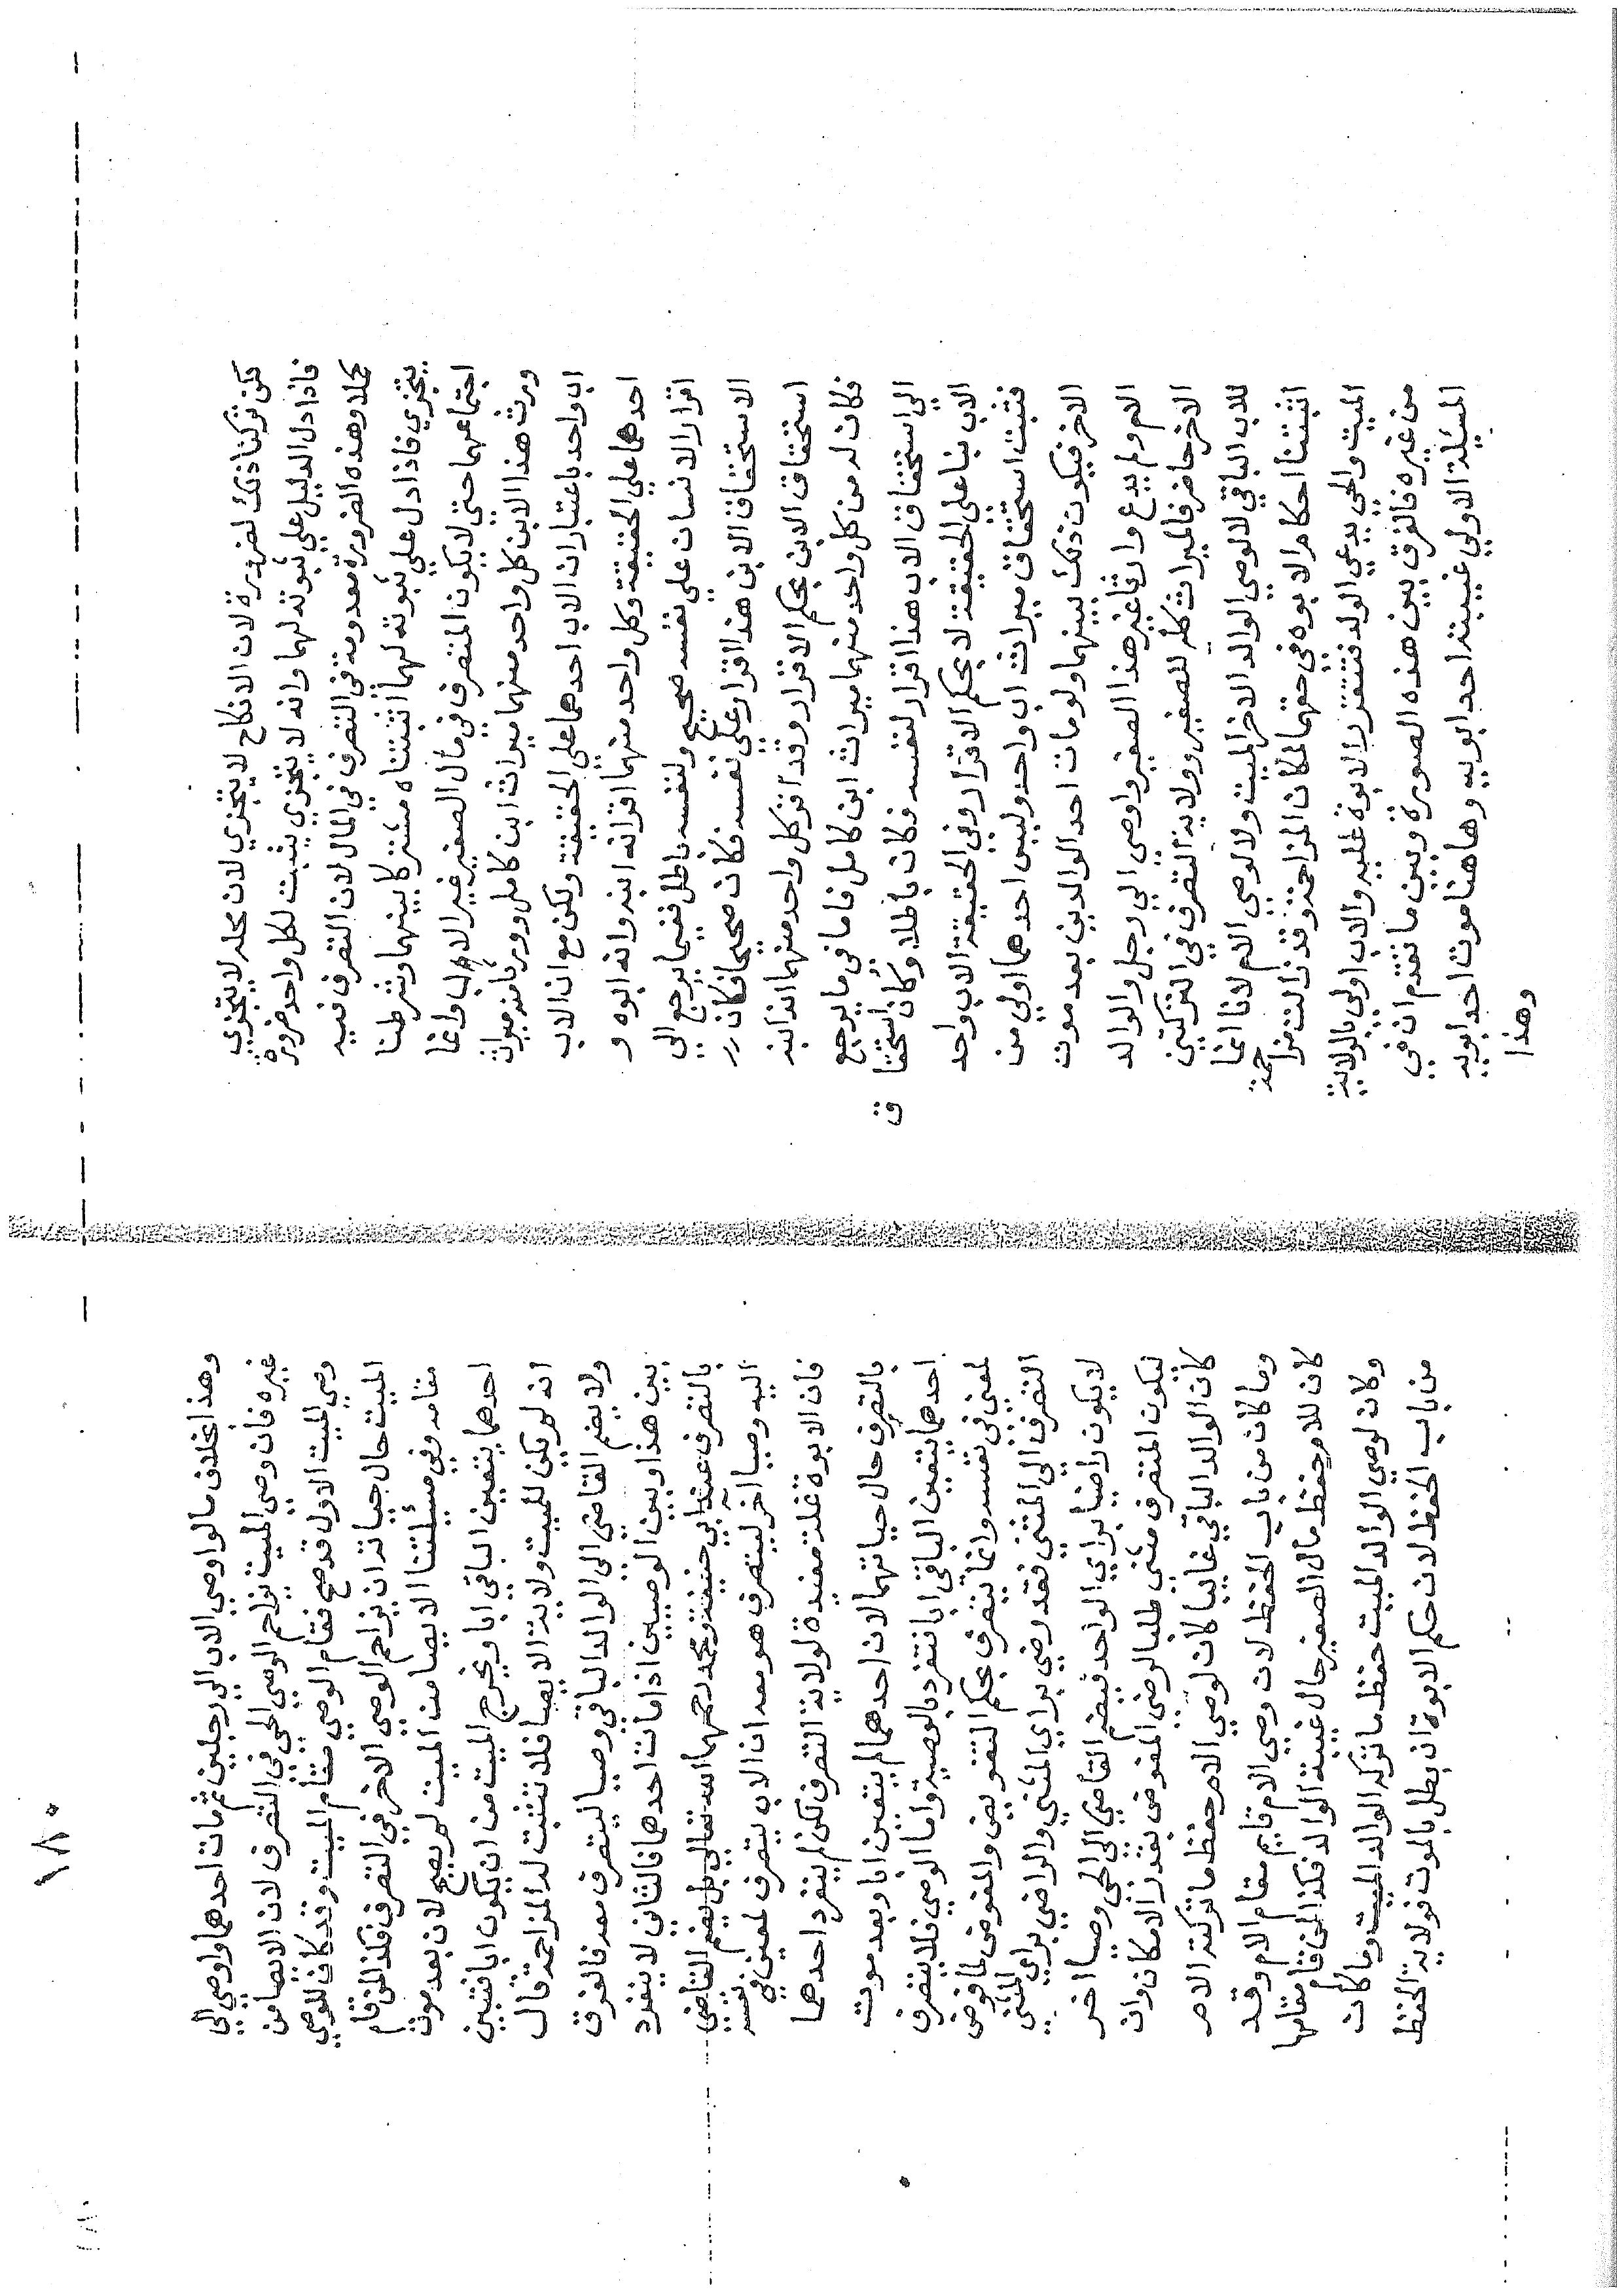 لكن تركنا ذلك لضرورة لان الانكاح لا يتجزي لان محله لا يتجزي
فاذا دل الدليل علي ثبوته لهما وانه لا يتجزي يثبت لكل واحد ضرورة
كملا وهذه الضرورة معدومة في التصرف في المال لان التصرف فيه
يتجزي فاذا دل علي ثبوته لهما اثبتناه مشتركا بينهما وشرطنا
اجتماعهما حتي لا يكون المتصرف في مال الصغير غير الاب وانما
ورث هذا الابن كل واحد منهما ميراث ابن كامل وورثا منه ميراث
اب واحد باعتبار ان الاب احدهما علي الحقيقة ولكن مع ان الاب
احدهما علي الحقيقة وكل واحد منهما اقر انه ابنه وانه ابوه و
اقرار الانسان علي نفسه صحيح ولنفسه باطل ففيما يرجع الي
الاستحقاق الابن هذا اقرار علي نفسه فكان صحيحا فكان
استحقاق الابن بحكم الاقرار وقد اقر كل واحد منهما انه ابنه
فكان له من كل واحد منهما ميراث ابن كامل فاما في ما يرجع
الي استحقاق الاب هذا اقرار لنفسه فكان باطلا وكان استحقاق
الاب بنا علي الحقيقة لا بحكم الاقرار وفي الحقيقة الاب واحد
فثبت استحقاق ميراث اب واحد وليس احدهما اولي من
الاخر فيكون ذلك بينهما ولو مات احد الوالدين بعد موت
الام ولم يدع وارثا غير هذا الصغير واوصي الي رجل والوالد
الاخر حاضر فالميراث كله للصغير وولاية التصرف في التركتين
للاب الباقي لا لوصي الوالد الاخر الميت ولا لوصي الام لانا انما
اثبتنا احكام الابوه في حقهما لمكان المزاحمة وقد زالت مزاحمة
الميت والحي يدعي الولد فتتقرر الابوة عليه والاب اولي بالولاية
من غيره فالفرق بين هذه الصورة وبين ما تقدم ان في
المسئلة الاولي غيبته احد ابويه وهاهنا موت احد ابويه
وهذا
١٨٠
وهذا بخلاف ما لو اوصي الاب الي رجلين ثم مات احدهما واوصي الي
غيره فان وصي الميت يزاحم الوصي الحي في التصرف لان الايصا من
وصي الميت الاول قد صح فقام الوصي مقام الميت وقد كان للوصي
الميت حال حياته ان يزاحم الوصي الاخر في التصرف فكذا لمن قام
مقامه وفي مسئلتنا الايصا من الميت لم يصح لان بعد موت
احدهما يتعين الباقي ابا ويخرج الميت من ان يكون ابا فتبين
انه لم يكن للميت ولاية الايصا فلا تثبت له المزاحمة قال
ولا يضم القاضي الي الوالد الباقي وصيا ليتصرف معه فالفرق
بين هذا وبين الوصيين اذا مات احدهما فالثاني لا ينفرد
بالتصرف عند ابي حنيفة ومحمد رحمهما الله تعالي بل يضم القاضي
اليه وصيا آخر ليتصرف هو معه ان الاب يتصرف لمعني في نفسه
فان الابوة علة مفيدة لولاية التصرف لكن لم ينفرد احدهما
بالتصرف حال حياتهما لان احدهما لم يتعين ابا وبعد موت
احدهما يتعين الباقي ابا ننفرد بالوصية واما الوصي فلا يتصرف
لمعني في نفسه وانما يتصرف بحكم التفويض والمفوض لما فوض
التصرف الي المثني فقد رضي براي المثني والراضي براي المثني
لا يكون راضيا براي الواحد فيضم القاضي الي الحي وصيا اخر
ليكون المتصرف مثني طلبا لرضي المفوض بقدر الامكان وان
كان الوالد الباقي غايبا كان لوصي الام حفظ ما تركته الام
وما كان من باب الحفظ لان وصي الام قايم مقام الام وقد
كان للام حفظ مال الصغير حال غيبة الوالد فكذا لمن قام مقامها
وكان لوصي الوالد الميت حفظ ما تركه الوالد الميت وما كان
من باب الحفظ لان حكم الابوة ان بطل بالموت فولاية الحفظ